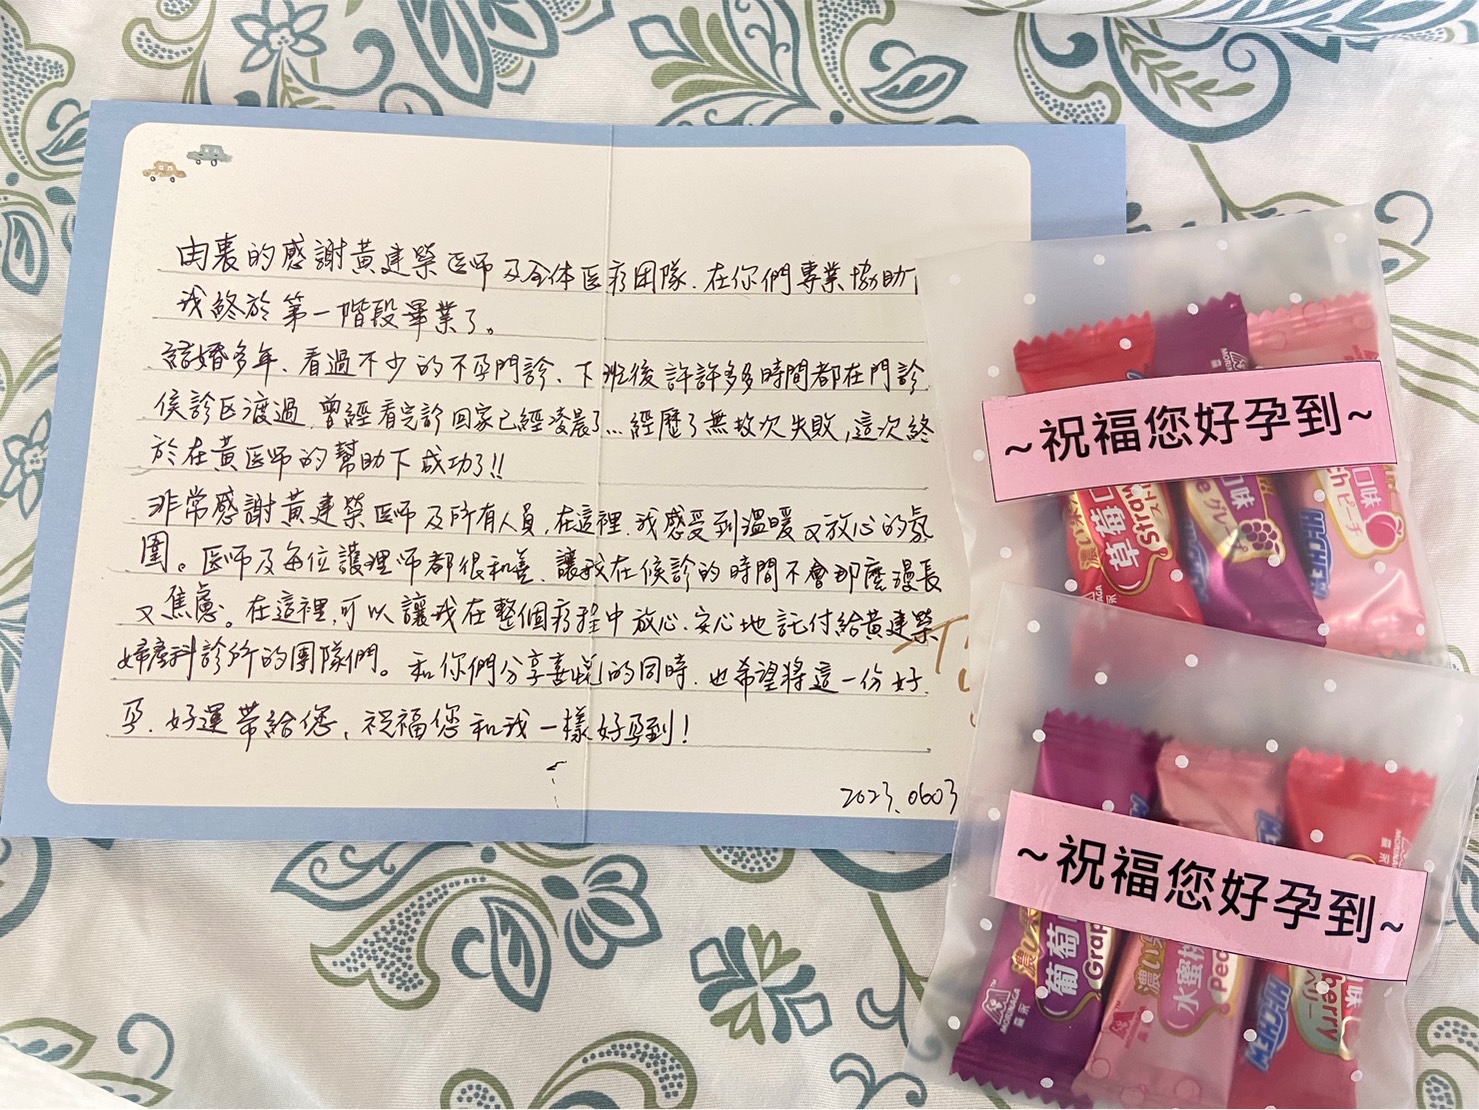 由衷的感謝黃建榮医師及全体医疗团隊.在你們專業協助下
我終於第一階段畢業了。
結婚多年、看過不少的不孕門診、下班後許許多多時間都在門診
侯診区渡過,曾經看完診回家已經凌晨了...經歷了無故次失敗,這次終
於在黃医師的幫助下成功了!!
非常感謝黃建榮医师及所有人員,在這裡,我感受到溫暖又放心的氛
圍。医師及每位護理師都很和善、讓我在侯診的時間不會那麼漫長
又焦慮。在這裡,可以讓我在整個疗程中放心、安心地託付給黃建榮
婦產科診所的團隊們。和你們分享喜悅的同時,也希望將這一份好
孕.好運帶給您,祝福您和我一樣好孕到!
2023.0603
~祝福您好孕到~
濃い
草莓口
Straw
スト
口味
グレ
口味
ch ピーチ
HI-CHEW
MORINAGA
森永
~祝福您好孕到~
濃い
葡萄
Grap
MORINAGA
森永
濃い
水蜜桃
Pea
HI-CHEW
口味
berry
ベリー